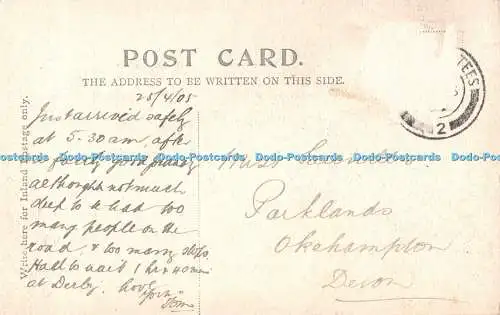 POST CARD.
THE ADDRESS TO BE WRITTEN ON THIS SIDE.
Write here for Inland Postage only.
25/4/05
Just arrived safely
at 5-30 am, after
a fairly good journey
although not much
sleep to be had too
many people on the
road, & too many stops
Had to wait 1 hr 40 min
at Derby. Love
from
Tom
Miss
Parklands
Okehampton
Devon
TEES
2
Dads-Postcards Dads-Postcards Dads-Postcards Dads-Postcards Dads-Postcards